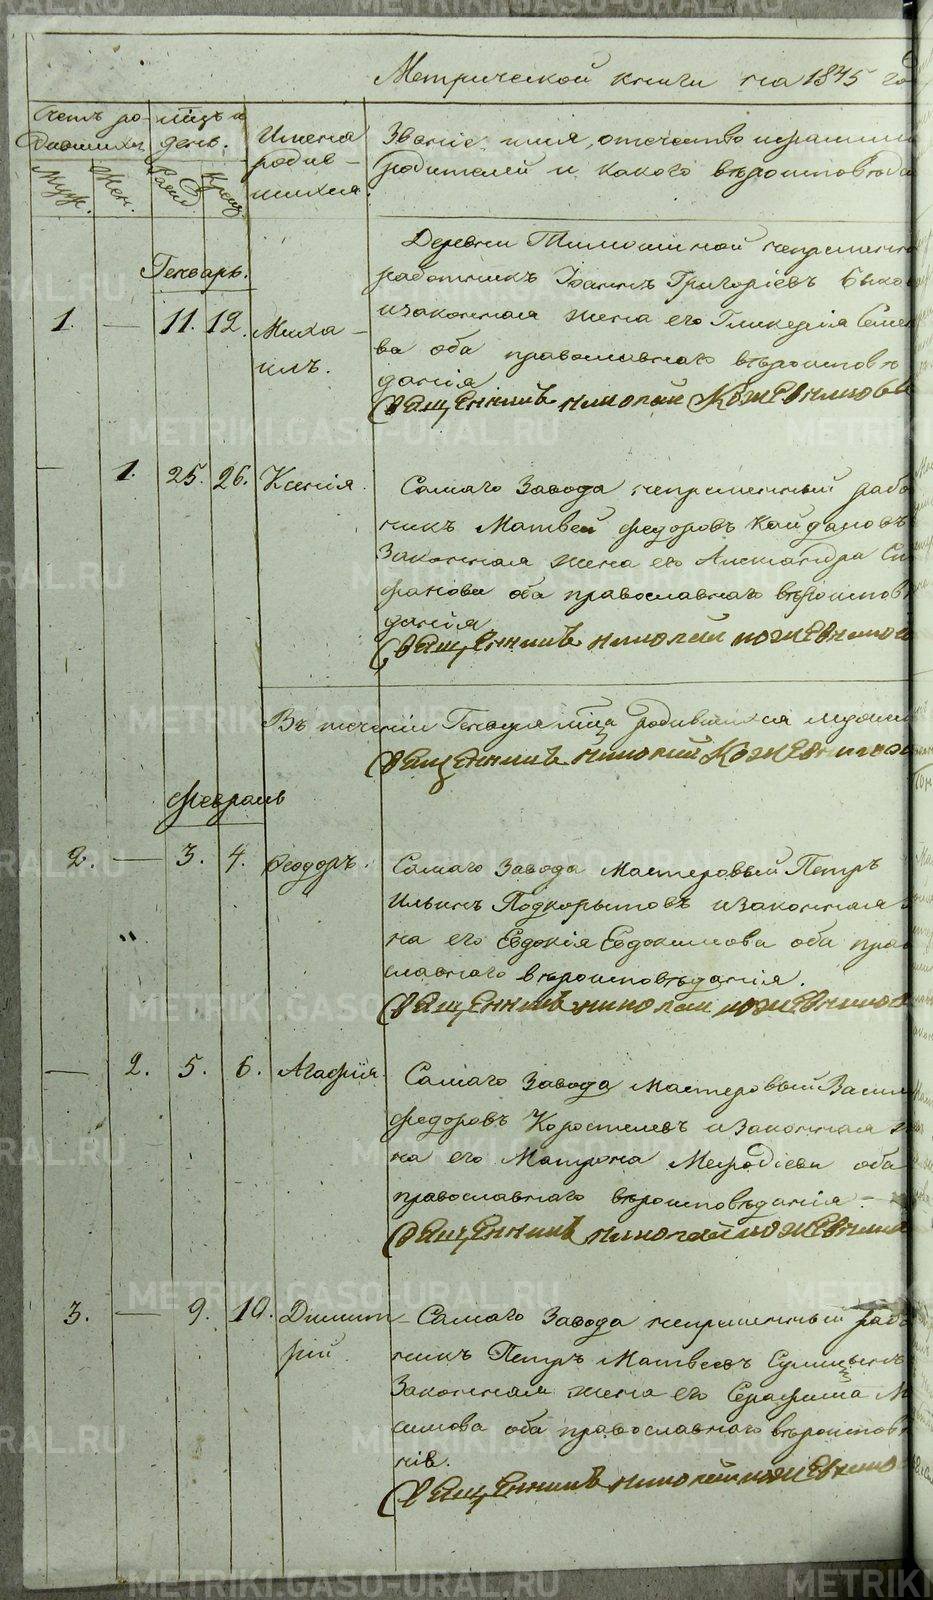 Метрической книги на 1845 го
Счетъ ро-
дившихся
Муж.
Жен.
мѣсяцъ и
день.
Рожд.
Крещ.
Имена
родив-
шихся.
Званіе, имя, отчество и фамилія
родителей и какого вѣроисповѣда
Генварь.
1. — 11. 12. Миха-
илъ.
Деревни Тимошиной непременно
работникъ Іоаннъ Григоріевъ Быко
и законная жена его Гликерія Семе
ва оба православнаго вѣроисповѣ
данія
Священникъ Николай Кожевниковъ
— 1. 25. 26. Ксенія.
Самаго Завода непременный рабо
никъ Матвей Федоровъ Кайдановъ
Законная жена его Александра Сте
фанова оба православнаго вѣроисповѣ
данія
Священникъ Николай Кожевников
Въ теченіи Генваря мца родившихся
Священникъ Николай Кожевников
Февраль
2. — 3. 4. Феодоръ.
Самаго Завода Мастеровый Петръ
Ильинъ Подкорытовъ и законная
на его Евдокія Евдокимова оба прав
славнаго вѣроисповѣданія.
Священникъ Николай Кожевников
— 2. 5. 6. Агафия.
Самаго Завода мастеровый Васил
Федоровъ Коростелевъ и Законная
на его Матрона Мефодіева оба
православнаго вѣроисповѣданія —
Священникъ Николай Кожевник
3. — 9. 10. Димит-
рій.
Самаго Завода непременный рабо
никъ Петръ Матвеевъ
Законная жена его Серафима М
симова оба православнаго вѣроисповѣ
нія.
Священникъ Николай Кожевнико
METRIKI.GASO-URAL.RU